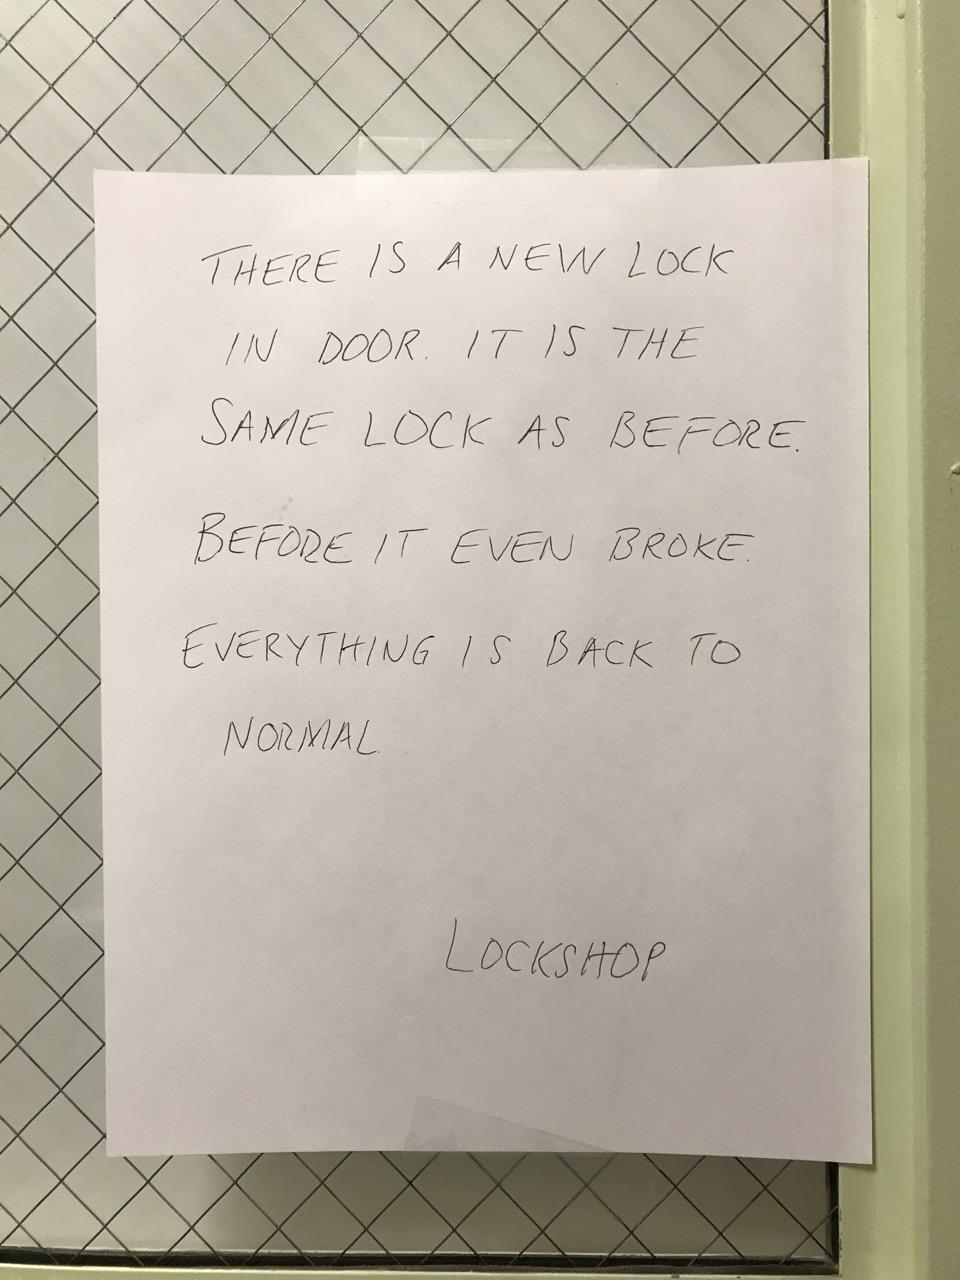 THERE IS A NEW LOCK
IN DOOR. IT IS THE
SAME LOCK AS BEFORE.
BEFORE IT EVEN BROKE.
EVERYTHING IS BACK TO
NORMAL.
LOCKSHOP